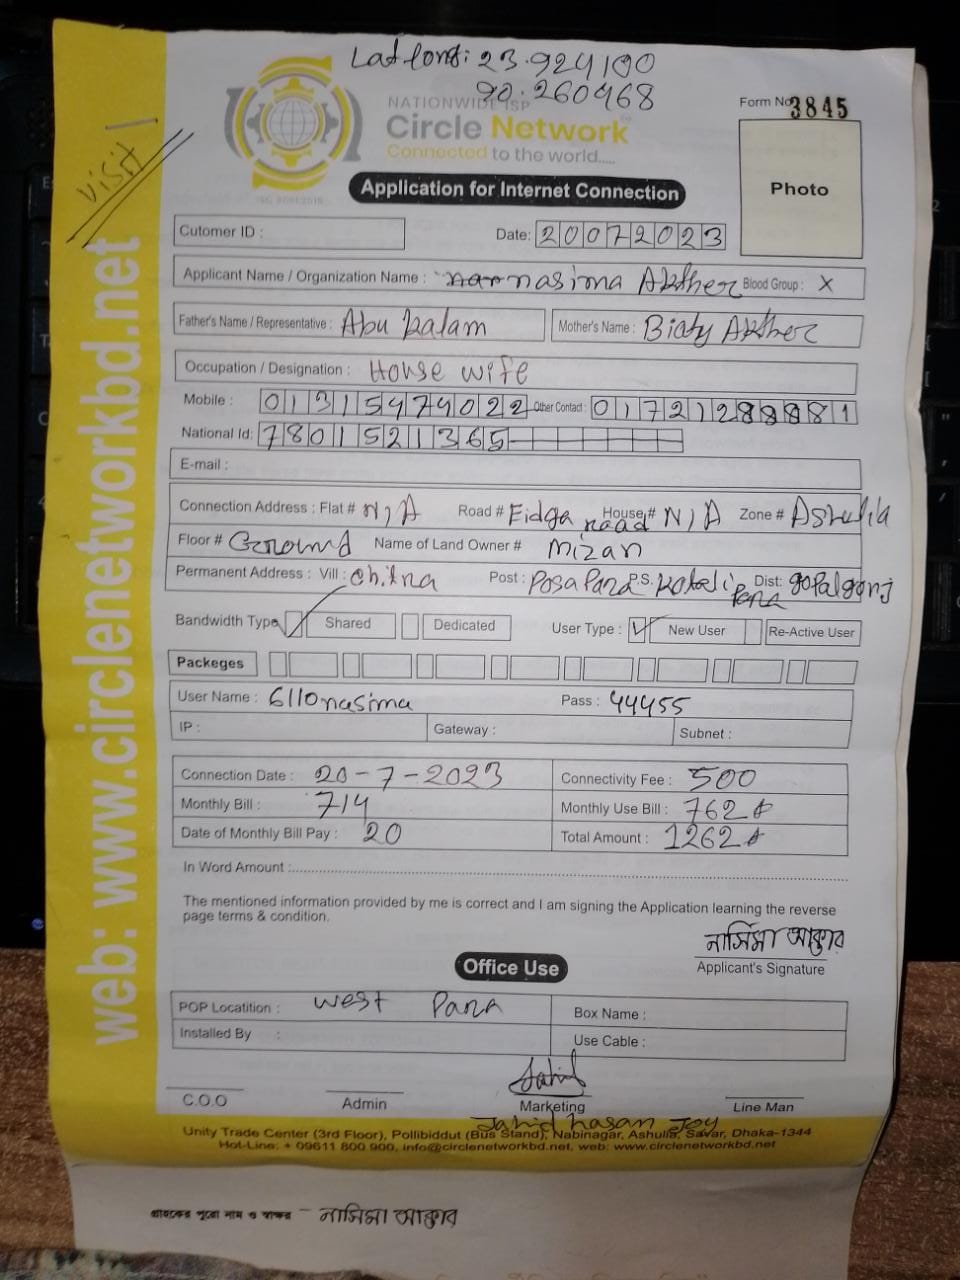 Lat long: 23.924100
90.260468
NATIONWIDE ISP
Circle Network
Connected to the world.....
Form No 3845
visit
Photo
Application for Internet Connection
Cutomer ID :
Date: 20072023
Applicant Name / Organization Name : nasima Akther Blood Group : X
Father's Name / Representative : Abu Kalam Mother's Name : Akther
Occupation / Designation : House wife
Mobile : 01315474022 Other Contact : 01721288881
National Id: 7801521365
E-mail :
Connection Address : Flat # N/A Road # Eidga road House# N/A Zone # Ashulia
Floor # Ground Name of Land Owner # Mizan
Permanent Address : Vill : Post : Posa Para P.S. Kotali Para Dist: gopalgonj
Bandwidth Type Shared Dedicated User Type : New User Re-Active User
Packeges
User Name : 6110nasima Pass : 44455
IP : Gateway : Subnet :
Connection Date : 20-7-2023 Connectivity Fee : 500
Monthly Bill : 714 Monthly Use Bill : 762
Date of Monthly Bill Pay : 20 Total Amount : 1262
In Word Amount :
The mentioned information provided by me is correct and I am signing the Application learning the reverse
page terms & condition.
নাসিমা আক্তার
Applicant's Signature
Office Use
POP Locatition : West Para Box Name :
Installed By : Use Cable :
C.O.O Admin Marketing Line Man
Jahid hasan Joy
Unity Trade Center (3rd Floor), Pollibiddut (Bus Stand), Nabinagar, Ashulia, Savar, Dhaka-1344
Hot-Line: + 09611 800 900, info@circlenetworkbd.net, web: www.circlenetworkbd.net
web: www.circlenetworkbd.net
গ্রাহকের পুরো নাম ও স্বাক্ষর - নাসিমা আক্তার